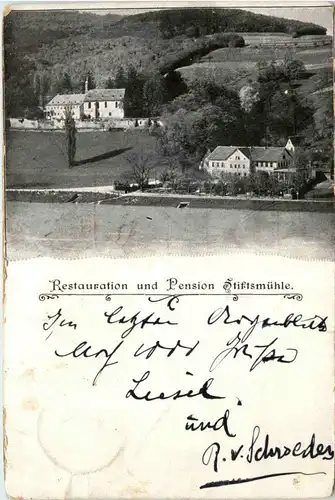 Restauration und Pension Stiftsmühle.
Im letzten
noch 1000 Grüsse
Liesel
und
R. v. Schroeder